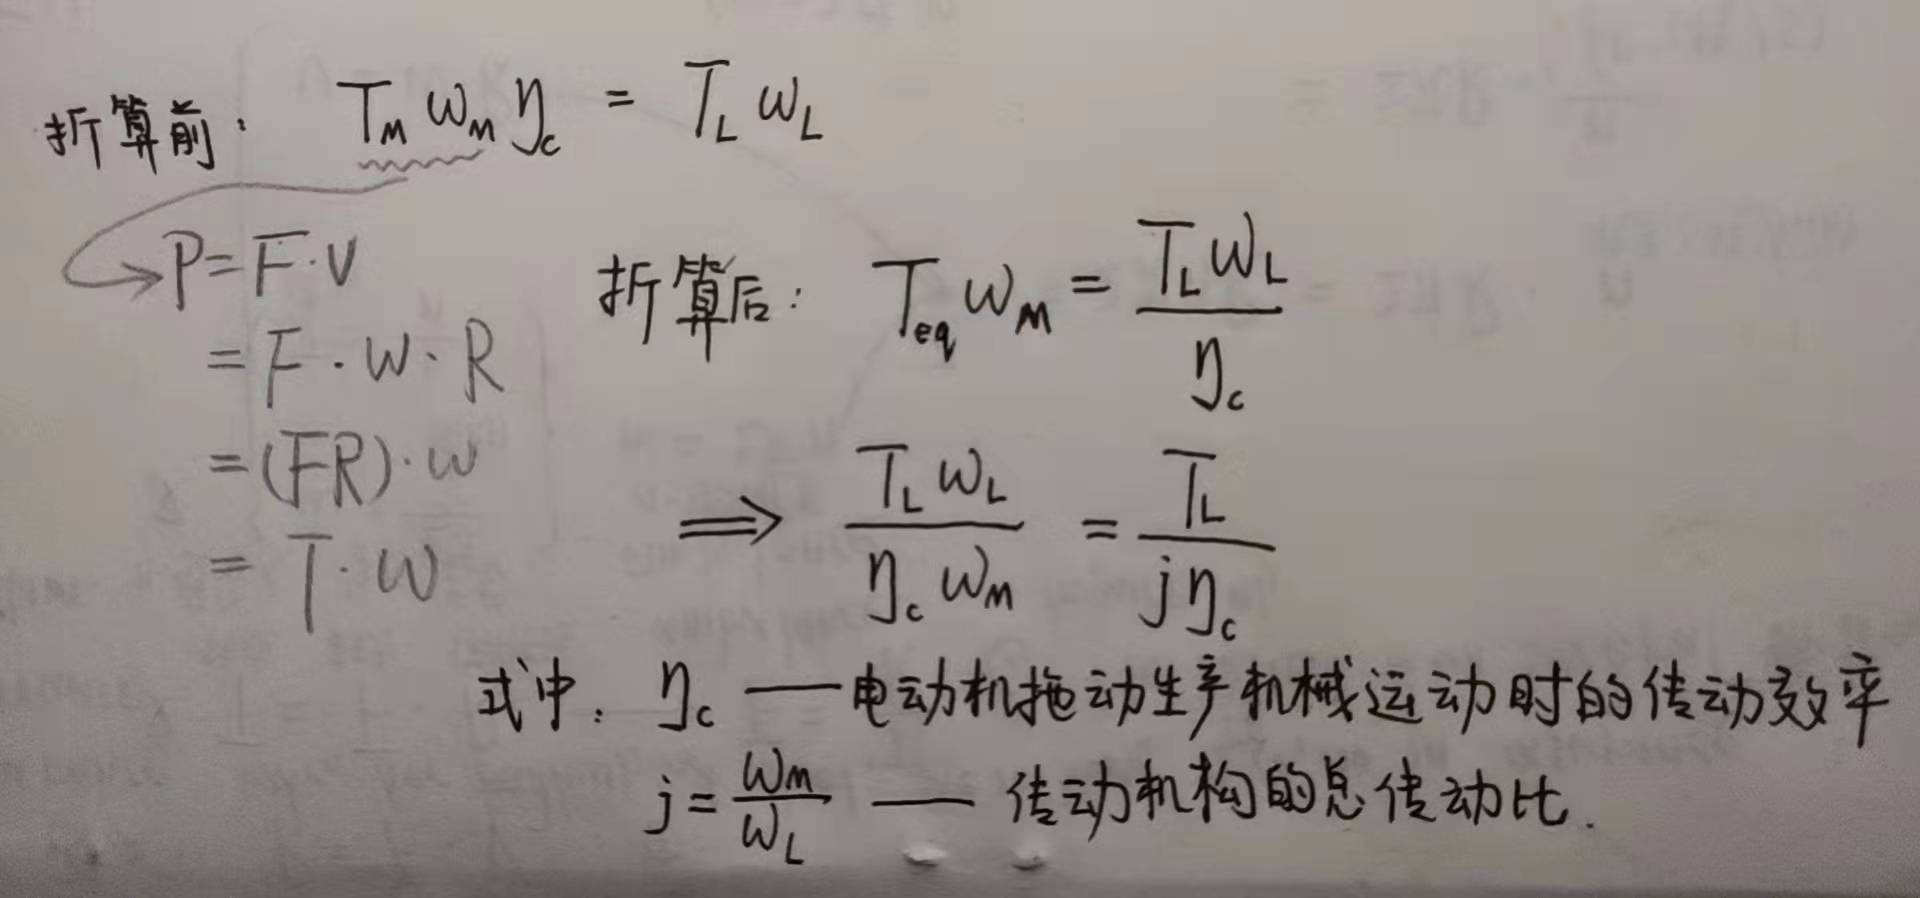 折算前: T_M ω_M η_c = T_L ω_L
P = F·v
= F·ω·R
= (FR)·ω
= T·ω
折算后: T_eq ω_M = T_L ω_L / η_c
⟹ T_L ω_L / η_c ω_M = T_L / j η_c
式中: η_c —— 电动机拖动生产机械运动时的传动效率
j = ω_M / ω_L —— 传动机构的总传动比.